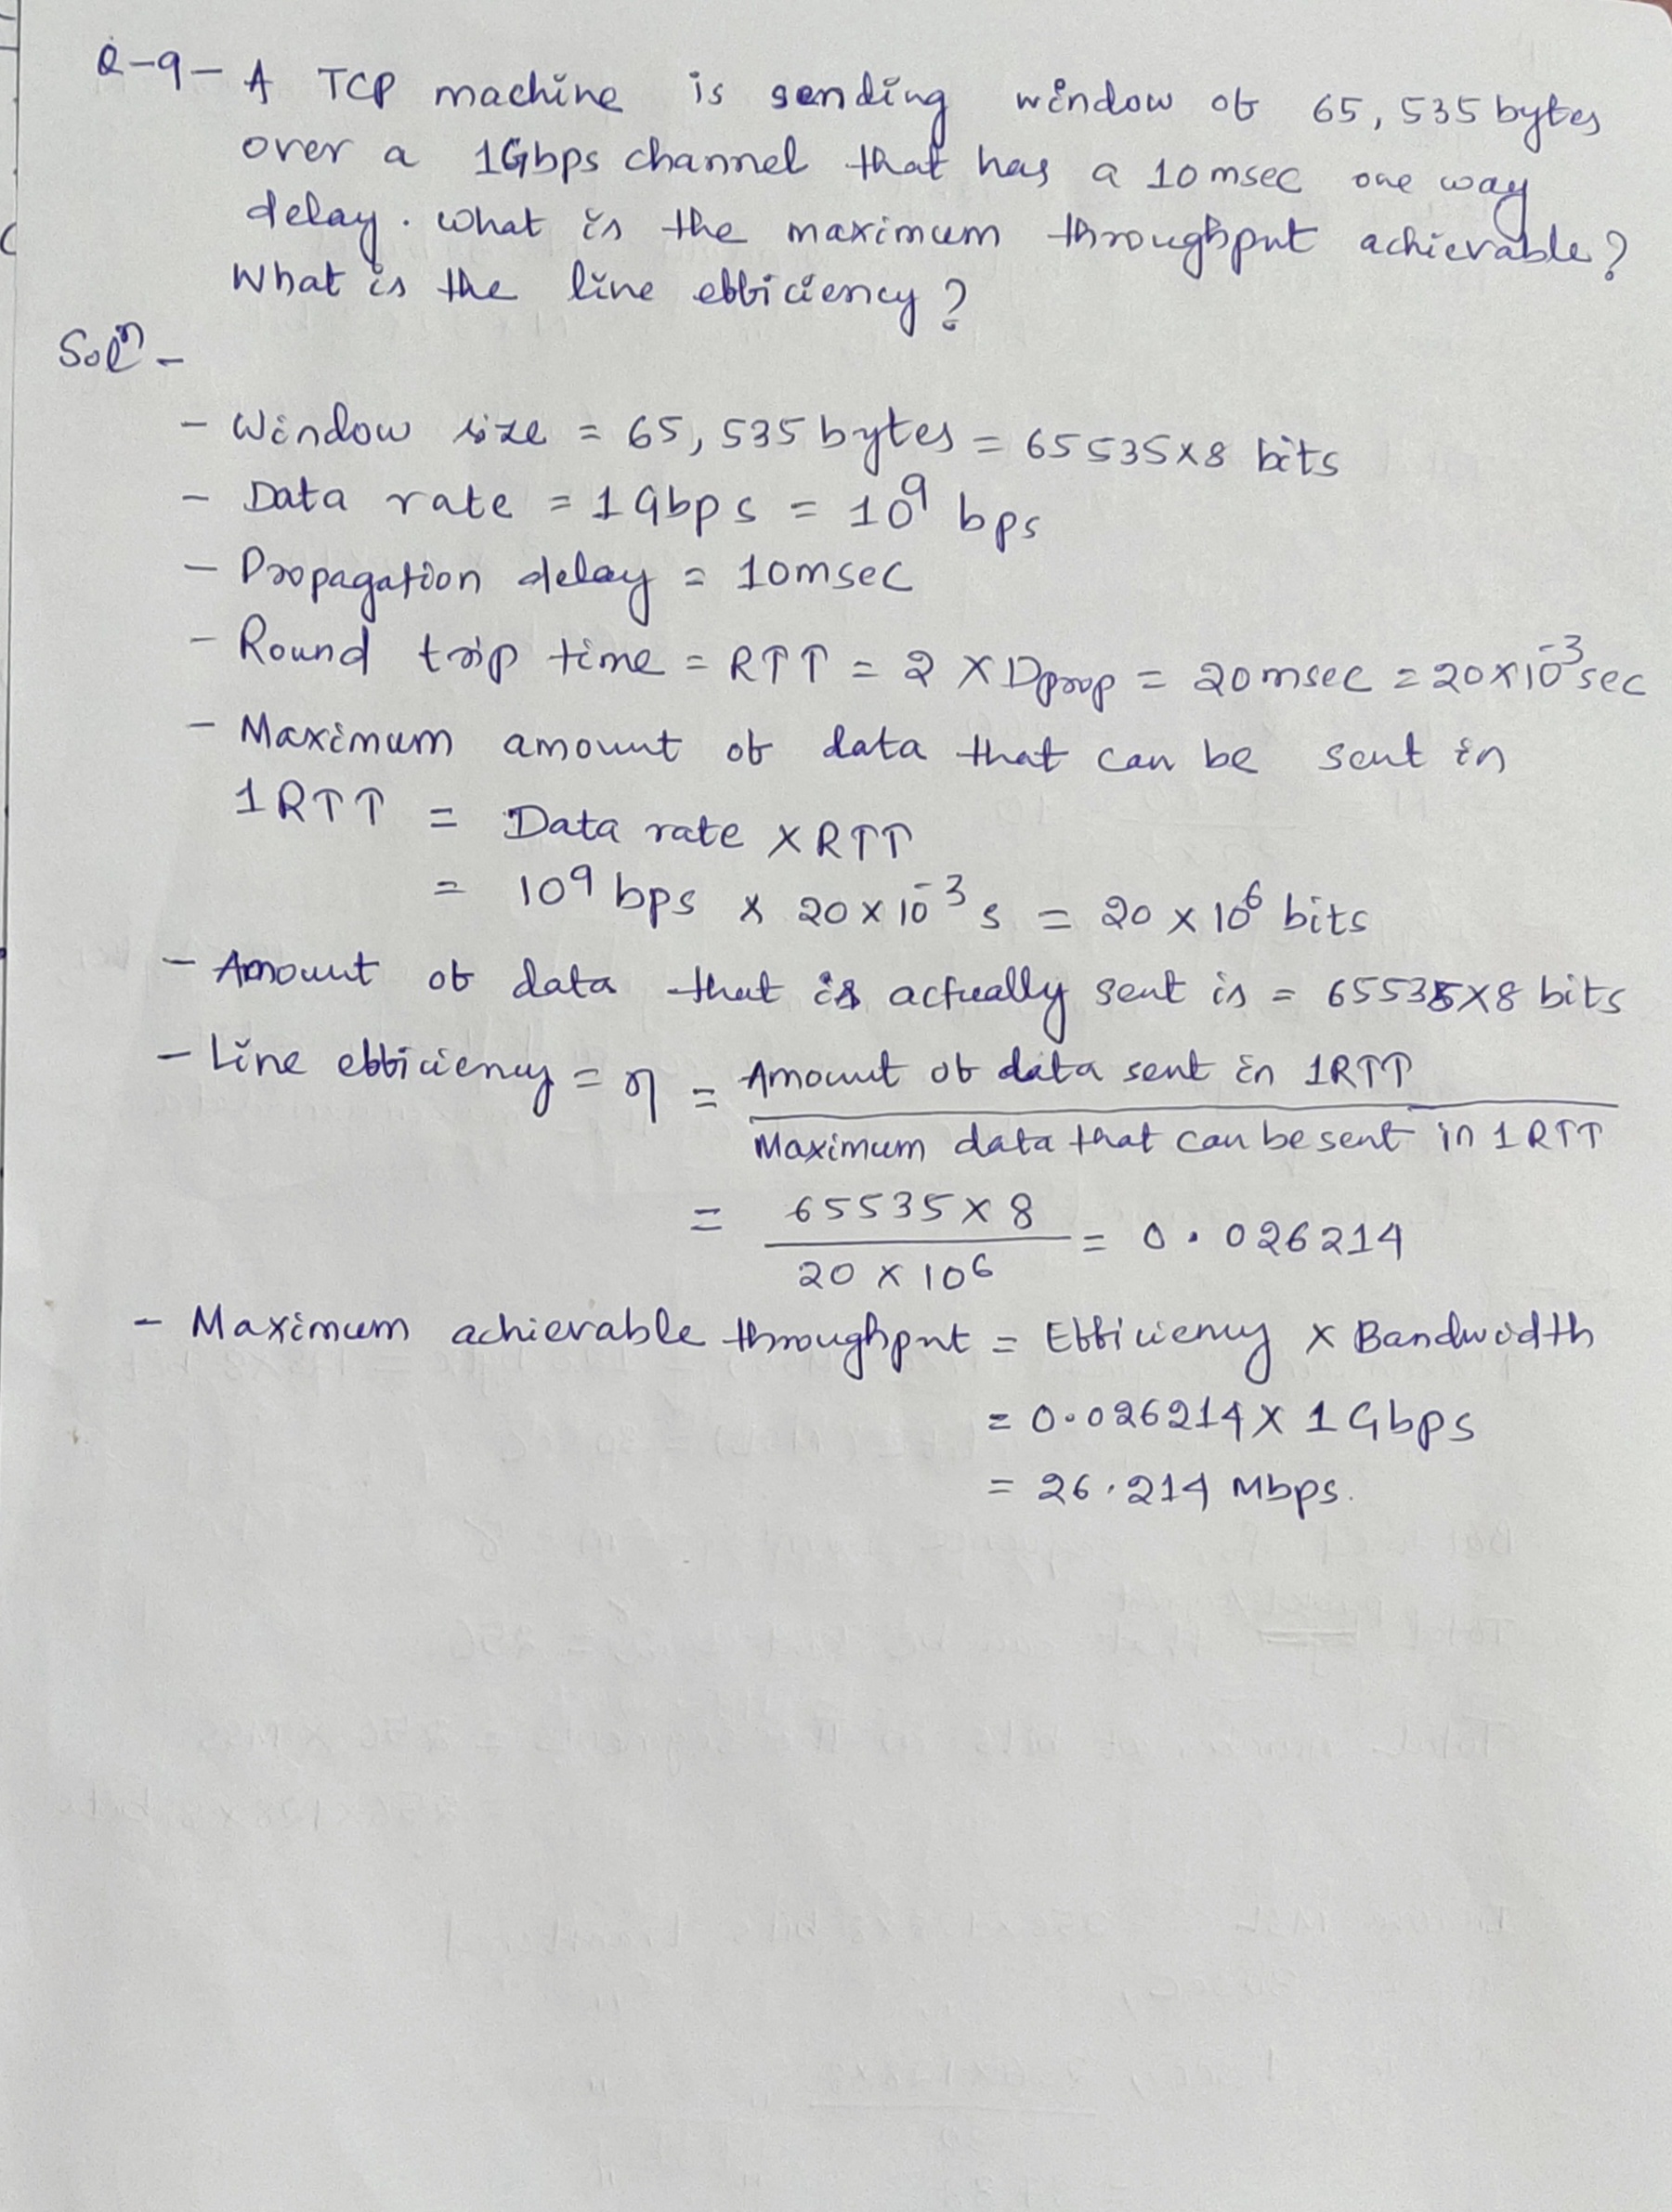 Q-9- A TCP machine is sending window of 65,535 bytes
over a 1Gbps channel that has a 10 msec one way
delay. What is the maximum throughput achievable?
What is the line efficiency?
Solⁿ -
- Window size = 65,535 bytes = 65535×8 bits
- Data rate = 1 Gbps = 10⁹ bps
- Propagation delay = 10msec
- Round trip time = RTT = 2 × Dprop = 20 msec = 20×10⁻³ sec
- Maximum amount of data that can be sent in
1 RTT = Data rate × RTT
= 10⁹ bps × 20×10⁻³ s = 20 × 10⁶ bits
- Amount of data that is actually sent is = 65535×8 bits
- Line efficiency = η = Amount of data sent in 1RTT
Maximum data that can be sent in 1 RTT
= 65535 × 8
20 × 10⁶ = 0.026214
- Maximum achievable throughput = Efficiency × Bandwidth
= 0.026214 × 1 Gbps
= 26.214 Mbps.